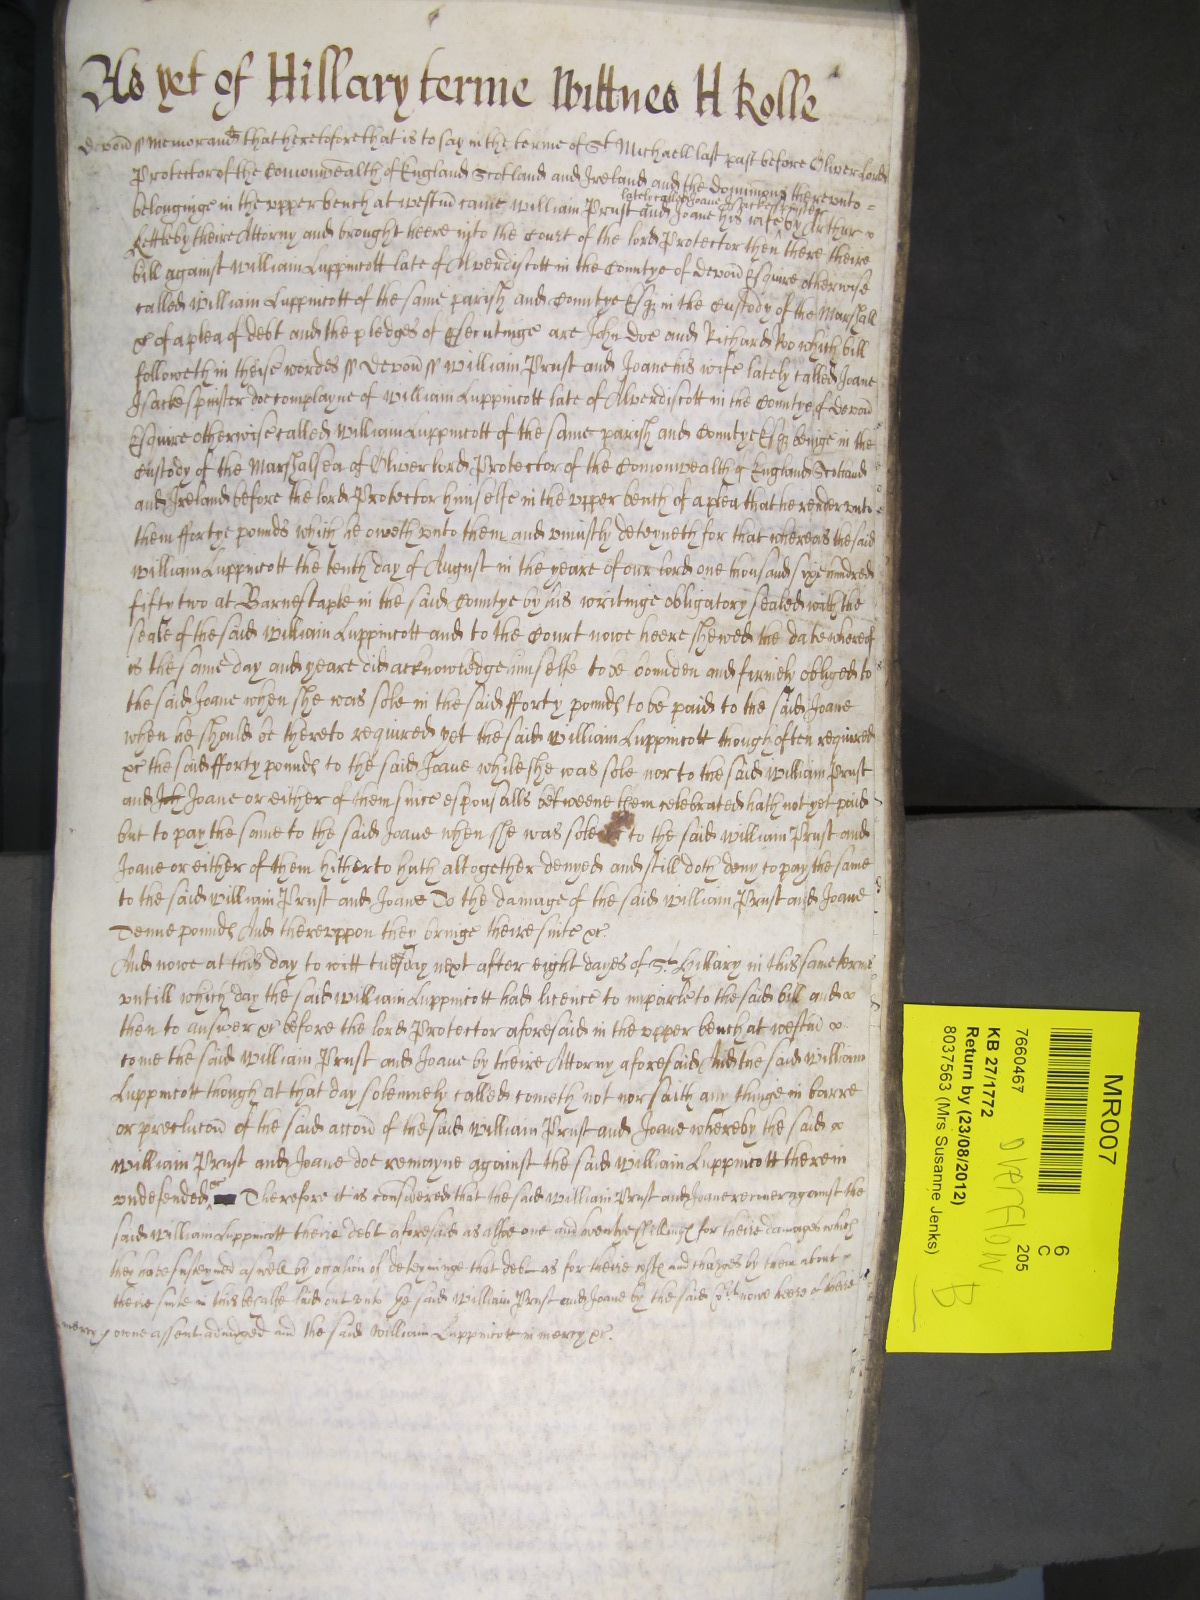 As yet of Hillary terme Wittnes H Rolle
Devoñ ss Memorand that heretofore that is to say in the terme of St Michaell last past before Oliver Lord
Protector of the Comonwealth of England Scotland and Ireland and the dominions thereunto =
belonginge in the upper bench at westm̃ came William Prust and Joane his wife by Arthur
lately called Joane Isacke spinster
theire Attorny and brought heere into the Court of the lord Protector then there theire
bill against William Luppincott late of Alverdiscott in the Countye of devoñ Esquire otherwise
called William Luppincott of the same parish and Countye Esq in the Custody of the Marshall
&c of a plea of debt and the pledges of prosecutinge are John Doe and Richard Roo which bill
followeth in theise wordes ss Devoñ ss William Prust and Joane his wife lately called Joane
Isacke spinster doe complayne of William Luppincott late of Alverdiscott in the Countye of Devoñ
Esquire otherwise called William Luppincott of the same parish and Countye Esq beinge in the
Custody of the Marshalsea of Oliver lord Protector of the Comonwealth of England Scotland
and Ireland before the lord Protector himselfe in the upper bench of a plea that he render unto
them fforty pounds which he oweth unto them and uniustly deteyneth for that whereas the said
William Luppincott the tenth day of August in the yeare of our lord one thousand sixe hundred
fifty two at Barnestaple in the said Countye by his writinge obligatory sealed with the
seale of the said William Luppincott and to the Court nowe heere shewed the date whereof
is the same day and yeare did acknowledge himselfe to be bounden and firmely obliged to
the said Joane when she was sole in the said fforty pounds to be paid to the said Joane
when he should be thereto required yet the said William Luppincott though often required
&c the said fforty pounds to the said Joane while she was sole nor to the said William Prust
and Joh Joane or either of them since espousalls betweene them celebrated hath not yet paid
but to pay the same to the said Joane when she was sole to the said William Prust and
Joane or either of them hitherto hath altogether denyed and still doth deny to pay the same
to the said William Prust and Joane To the damage of the said William Prust and Joane
Tenne pounds And thereuppon they bringe theire suite &c
And nowe at this day to witt tuesday next after eight dayes of St Hillary in this same terme
untill which day the said William Luppincott had licence to imparle to the said bill and
then to answer &c before the lord Protector aforesaid in the upper bench at westm̃
come the said William Prust and Joane by theire Attorny aforesaid And the said William
Luppincott though at that day solemnely called cometh not nor saith any thinge in barre
or preclucon of the said accon of the said William Prust and Joane whereby the said
William Prust and Joane doe remayne against the said William Luppincott therein
undefended &c Therefore it is considered that the said William Prust and Joane recouer against the
said William Luppincott theire debt aforesaid as alsoe one and twenty shillings for theire damages which
they have susteyned aswell by occasion of deteyninge that debt as for theire costs and charges by them about
theire suite in this behalfe laid out unto the said William Prust and Joane by the said Court nowe heere of theire
mercy owne assent adiudged and the said William Luppincott in mercy &c.
MR007
7660467
6
C
205
KB 27/1772
Return by (23/08/2012)
8037563 (Mrs Susanne Jenks)
overflow
B